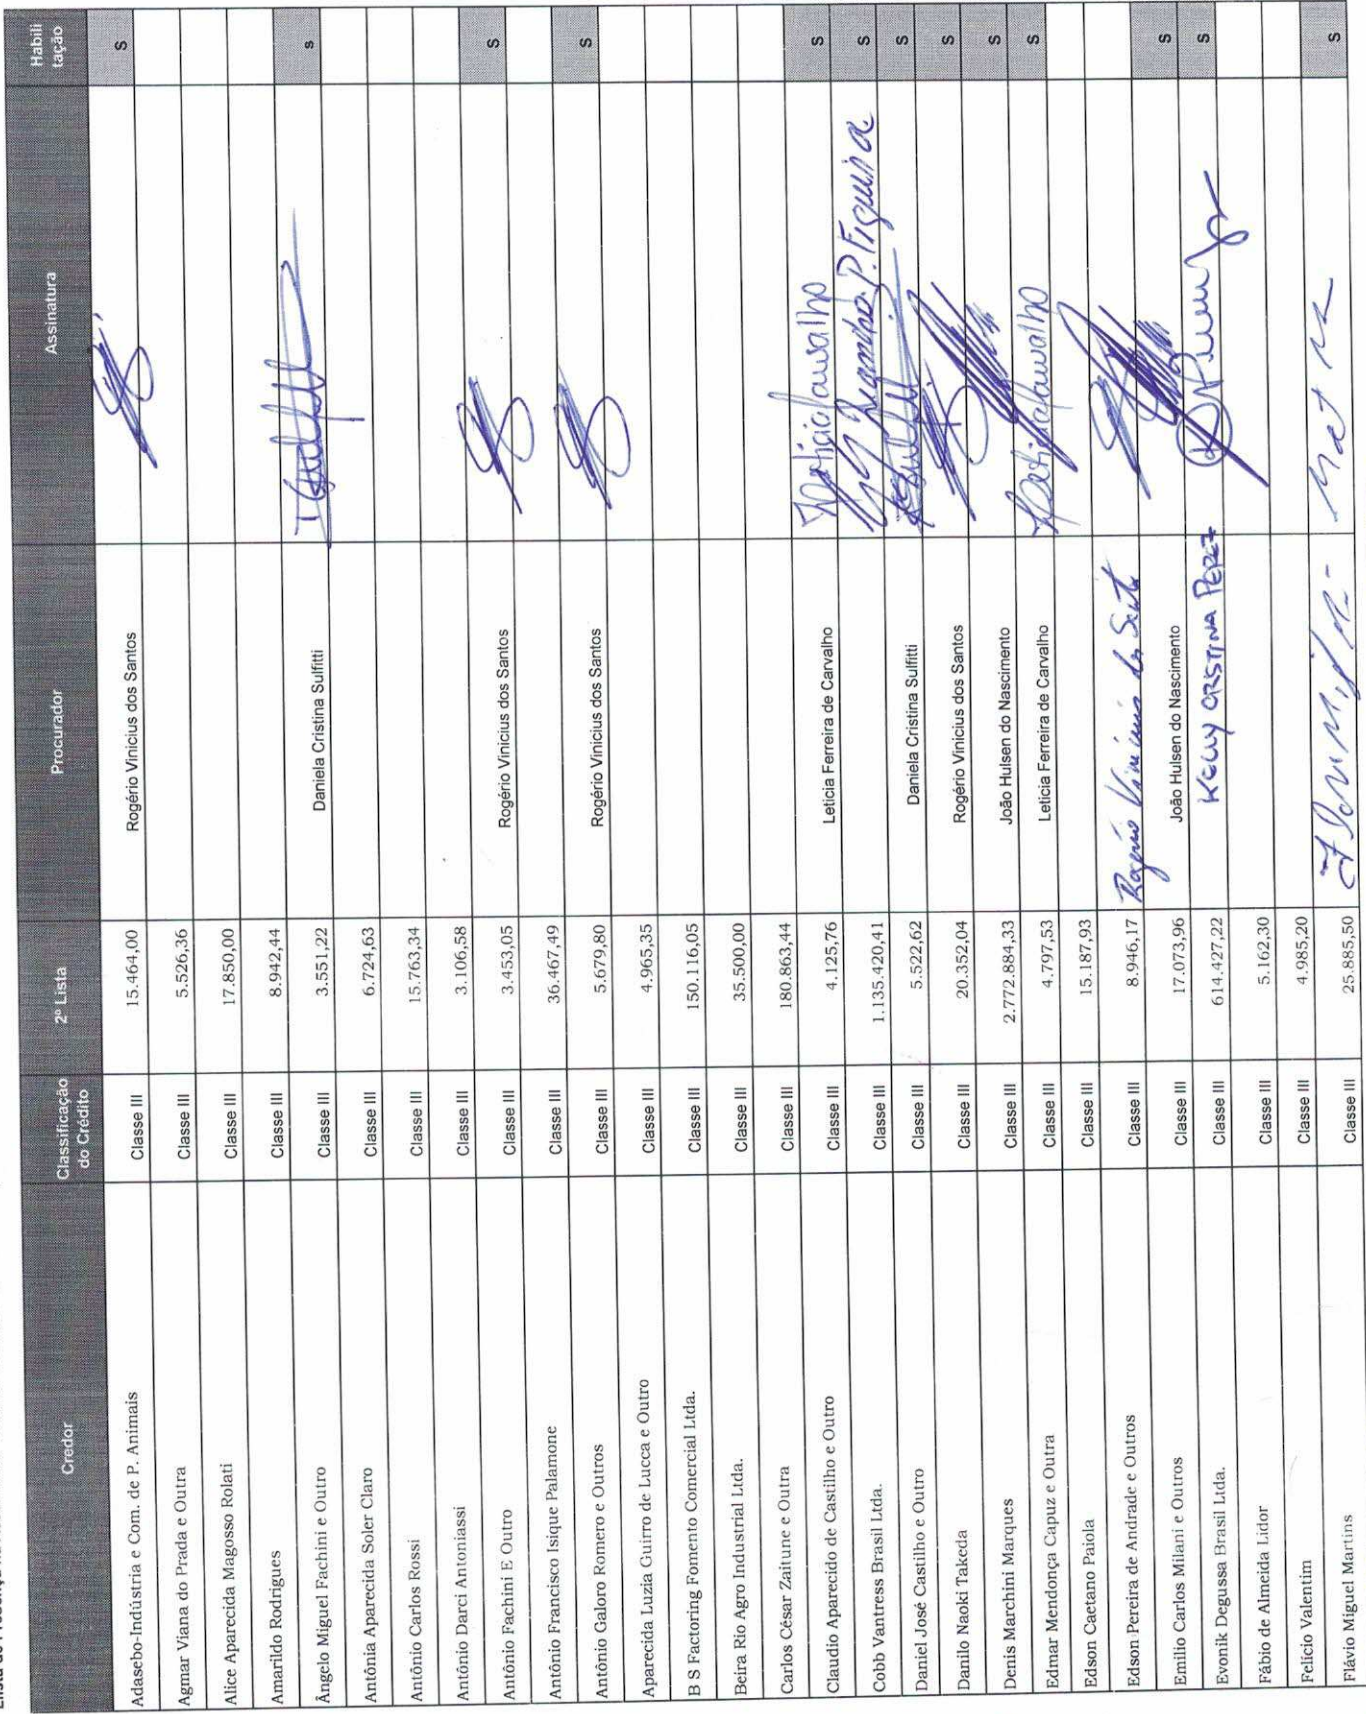 Credor Classificação do Crédito 2º Lista Procurador Assinatura Habili tação
Adasebo-Indústria e Com. de P. Animais Classe III 15.464,00 Rogério Vinicius dos Santos S
Agmar Viana do Prada e Outra Classe III 5.526,36
Alice Aparecida Magosso Rolati Classe III 17.850,00
Amarildo Rodrigues Classe III 8.942,44
Ângelo Miguel Fachini e Outro Classe III 3.551,22 Daniela Cristina Sulfitti s
Antônia Aparecida Soler Claro Classe III 6.724,63
Antônio Carlos Rossi Classe III 15.763,34
Antônio Darci Antoniassi Classe III 3.106,58
Antônio Fachini E Outro Classe III 3.453,05 Rogério Vinicius dos Santos S
Antônio Francisco Isique Palamone Classe III 36.467,49
Antônio Galoro Romero e Outros Classe III 5.679,80 Rogério Vinicius dos Santos S
Aparecida Luzia Guirro de Lucca e Outro Classe III 4.965,35
B S Factoring Fomento Comercial Ltda. Classe III 150.116,05
Beira Rio Agro Industrial Ltda. Classe III 35.500,00
Carlos César Zaitune e Outra Classe III 180.863,44
Claudio Aparecido de Castilho e Outro Classe III 4.125,76 Leticia Ferreira de Carvalho S
Cobb Vantress Brasil Ltda. Classe III 1.135.420,41 P. Figueira S
Daniel José Castilho e Outro Classe III 5.522,62 Daniela Cristina Sulfitti S
Danilo Naoki Takeda Classe III 20.352,04 Rogério Vinicius dos Santos S
Denis Marchini Marques Classe III 2.772.884,33 João Hulsen do Nascimento S
Edmar Mendonça Capuz e Outra Classe III 4.797,53 Leticia Ferreira de Carvalho S
Edson Caetano Paiola Classe III 15.187,93
Edson Pereira de Andrade e Outros Classe III 8.946,17 Rogério Vinicius dos Santos
Emilio Carlos Milani e Outros Classe III 17.073,96 João Hulsen do Nascimento S
Evonik Degussa Brasil Ltda. Classe III 614.427,22 KELLY CRISTINA PEREZ S
Fábio de Almeida Lidor Classe III 5.162,30
Felicio Valentim Classe III 4.985,20
Flávio Miguel Martins Classe III 25.885,50 S